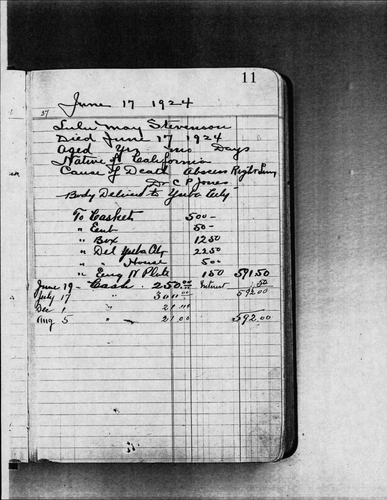 11
June 17 1924
37
Lulu May Stevenson
Died June 17 1924
Aged Yrs mo Days
Native of California
Cause of Death Absess Right Lung
Dr C P Jones
Body Delived to Yuba City
To Casket 500 -
" Emb 50 -
" Box 12 50
" Del Yuba City 22 50
" " House 5 00
" Eng N Plate 1 50 591.50
June 19 - Cash 250.00 Interest 50
July 17 " 300.00 592.00
Dec 1 " 21.00
Aug 5 " 21.00 592.00